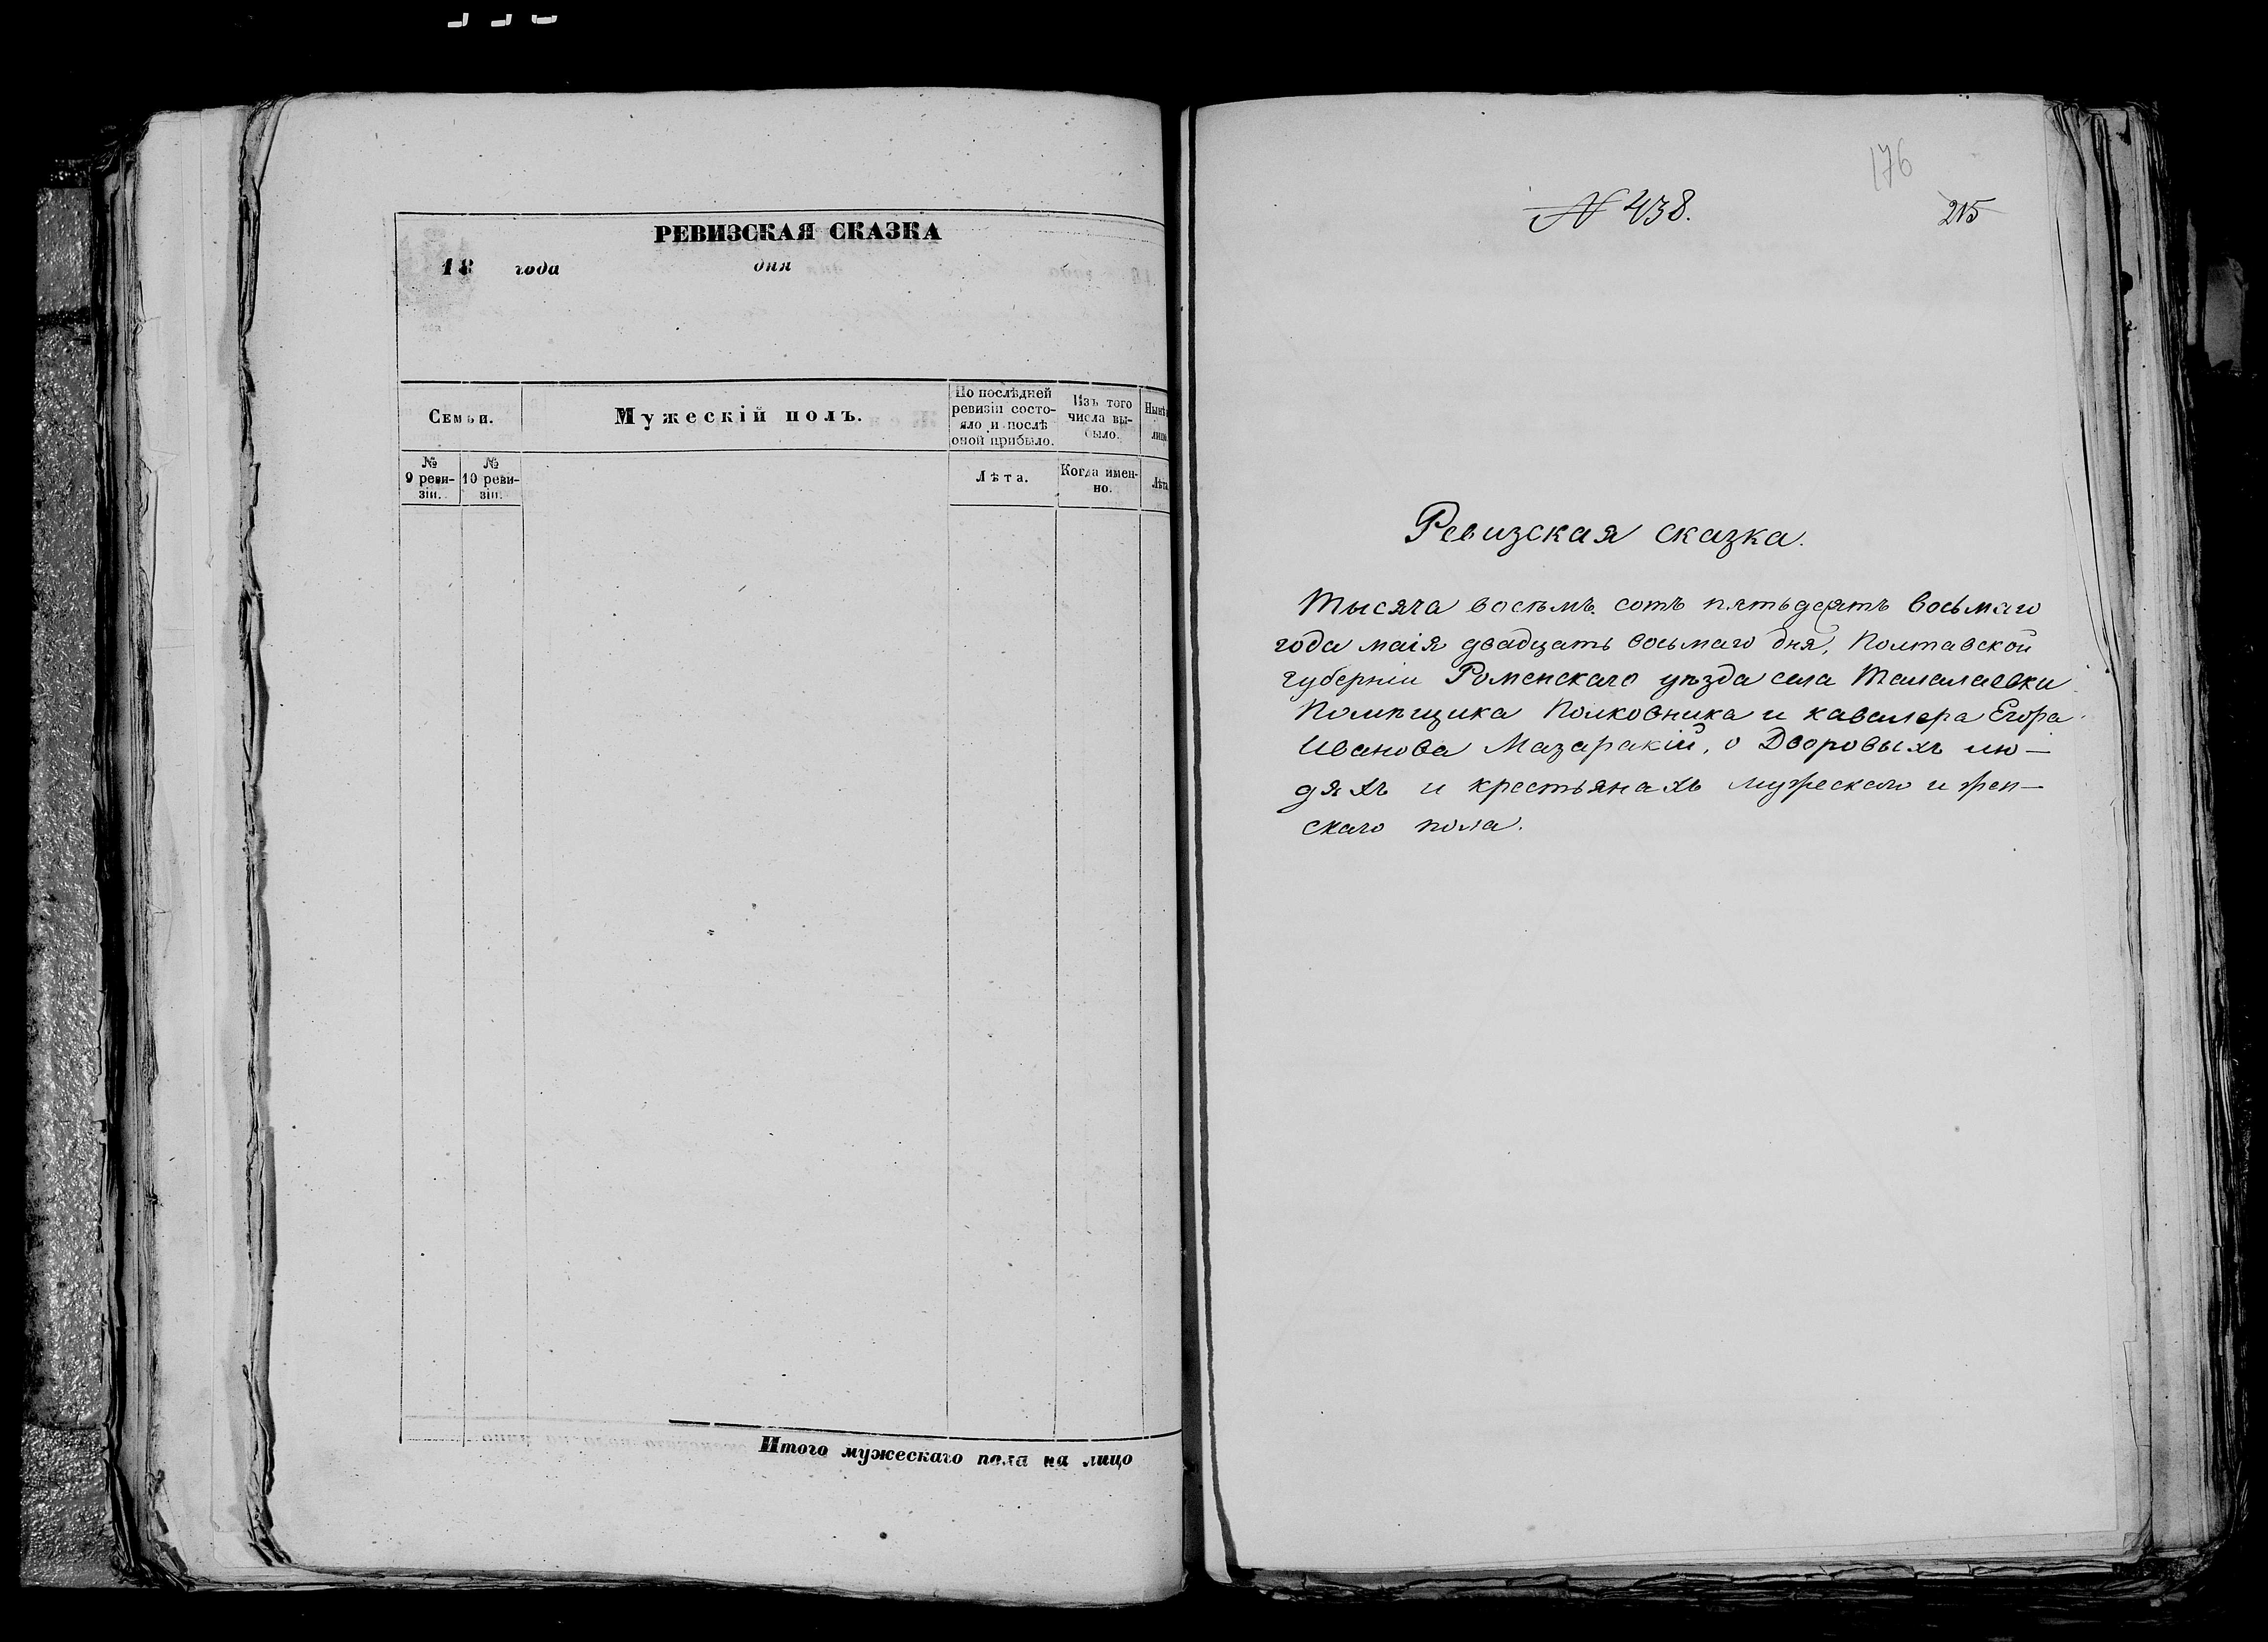 РЕВИЗСКАЯ СКАЗКА
18 года дня
Семьи.
Мужескій полъ.
По послѣдней
ревизіи состо-
яло и послѣ
оной прибыло.
Изъ того
числа вы-
было.
№
9 реви-
зіи.
№
10 реви-
зіи.
Лѣта.
Когда имен-
но.
Лѣта
Итого мужескаго пола на лицо
176
№ 438.
215
Ревизская сказка.
Тысяча восемь сотъ пятьдесятъ восьмаго
года маія двадцать восьмаго дня, Полтавской
губерніи Роменскаго уѣзда села Талалаевки
Помѣщика Полковника и кавалера Егора
Иванова Мазаракій, о Дворовыхъ лю-
дяхъ и крестьянахъ мужескаго и жен-
скаго пола.